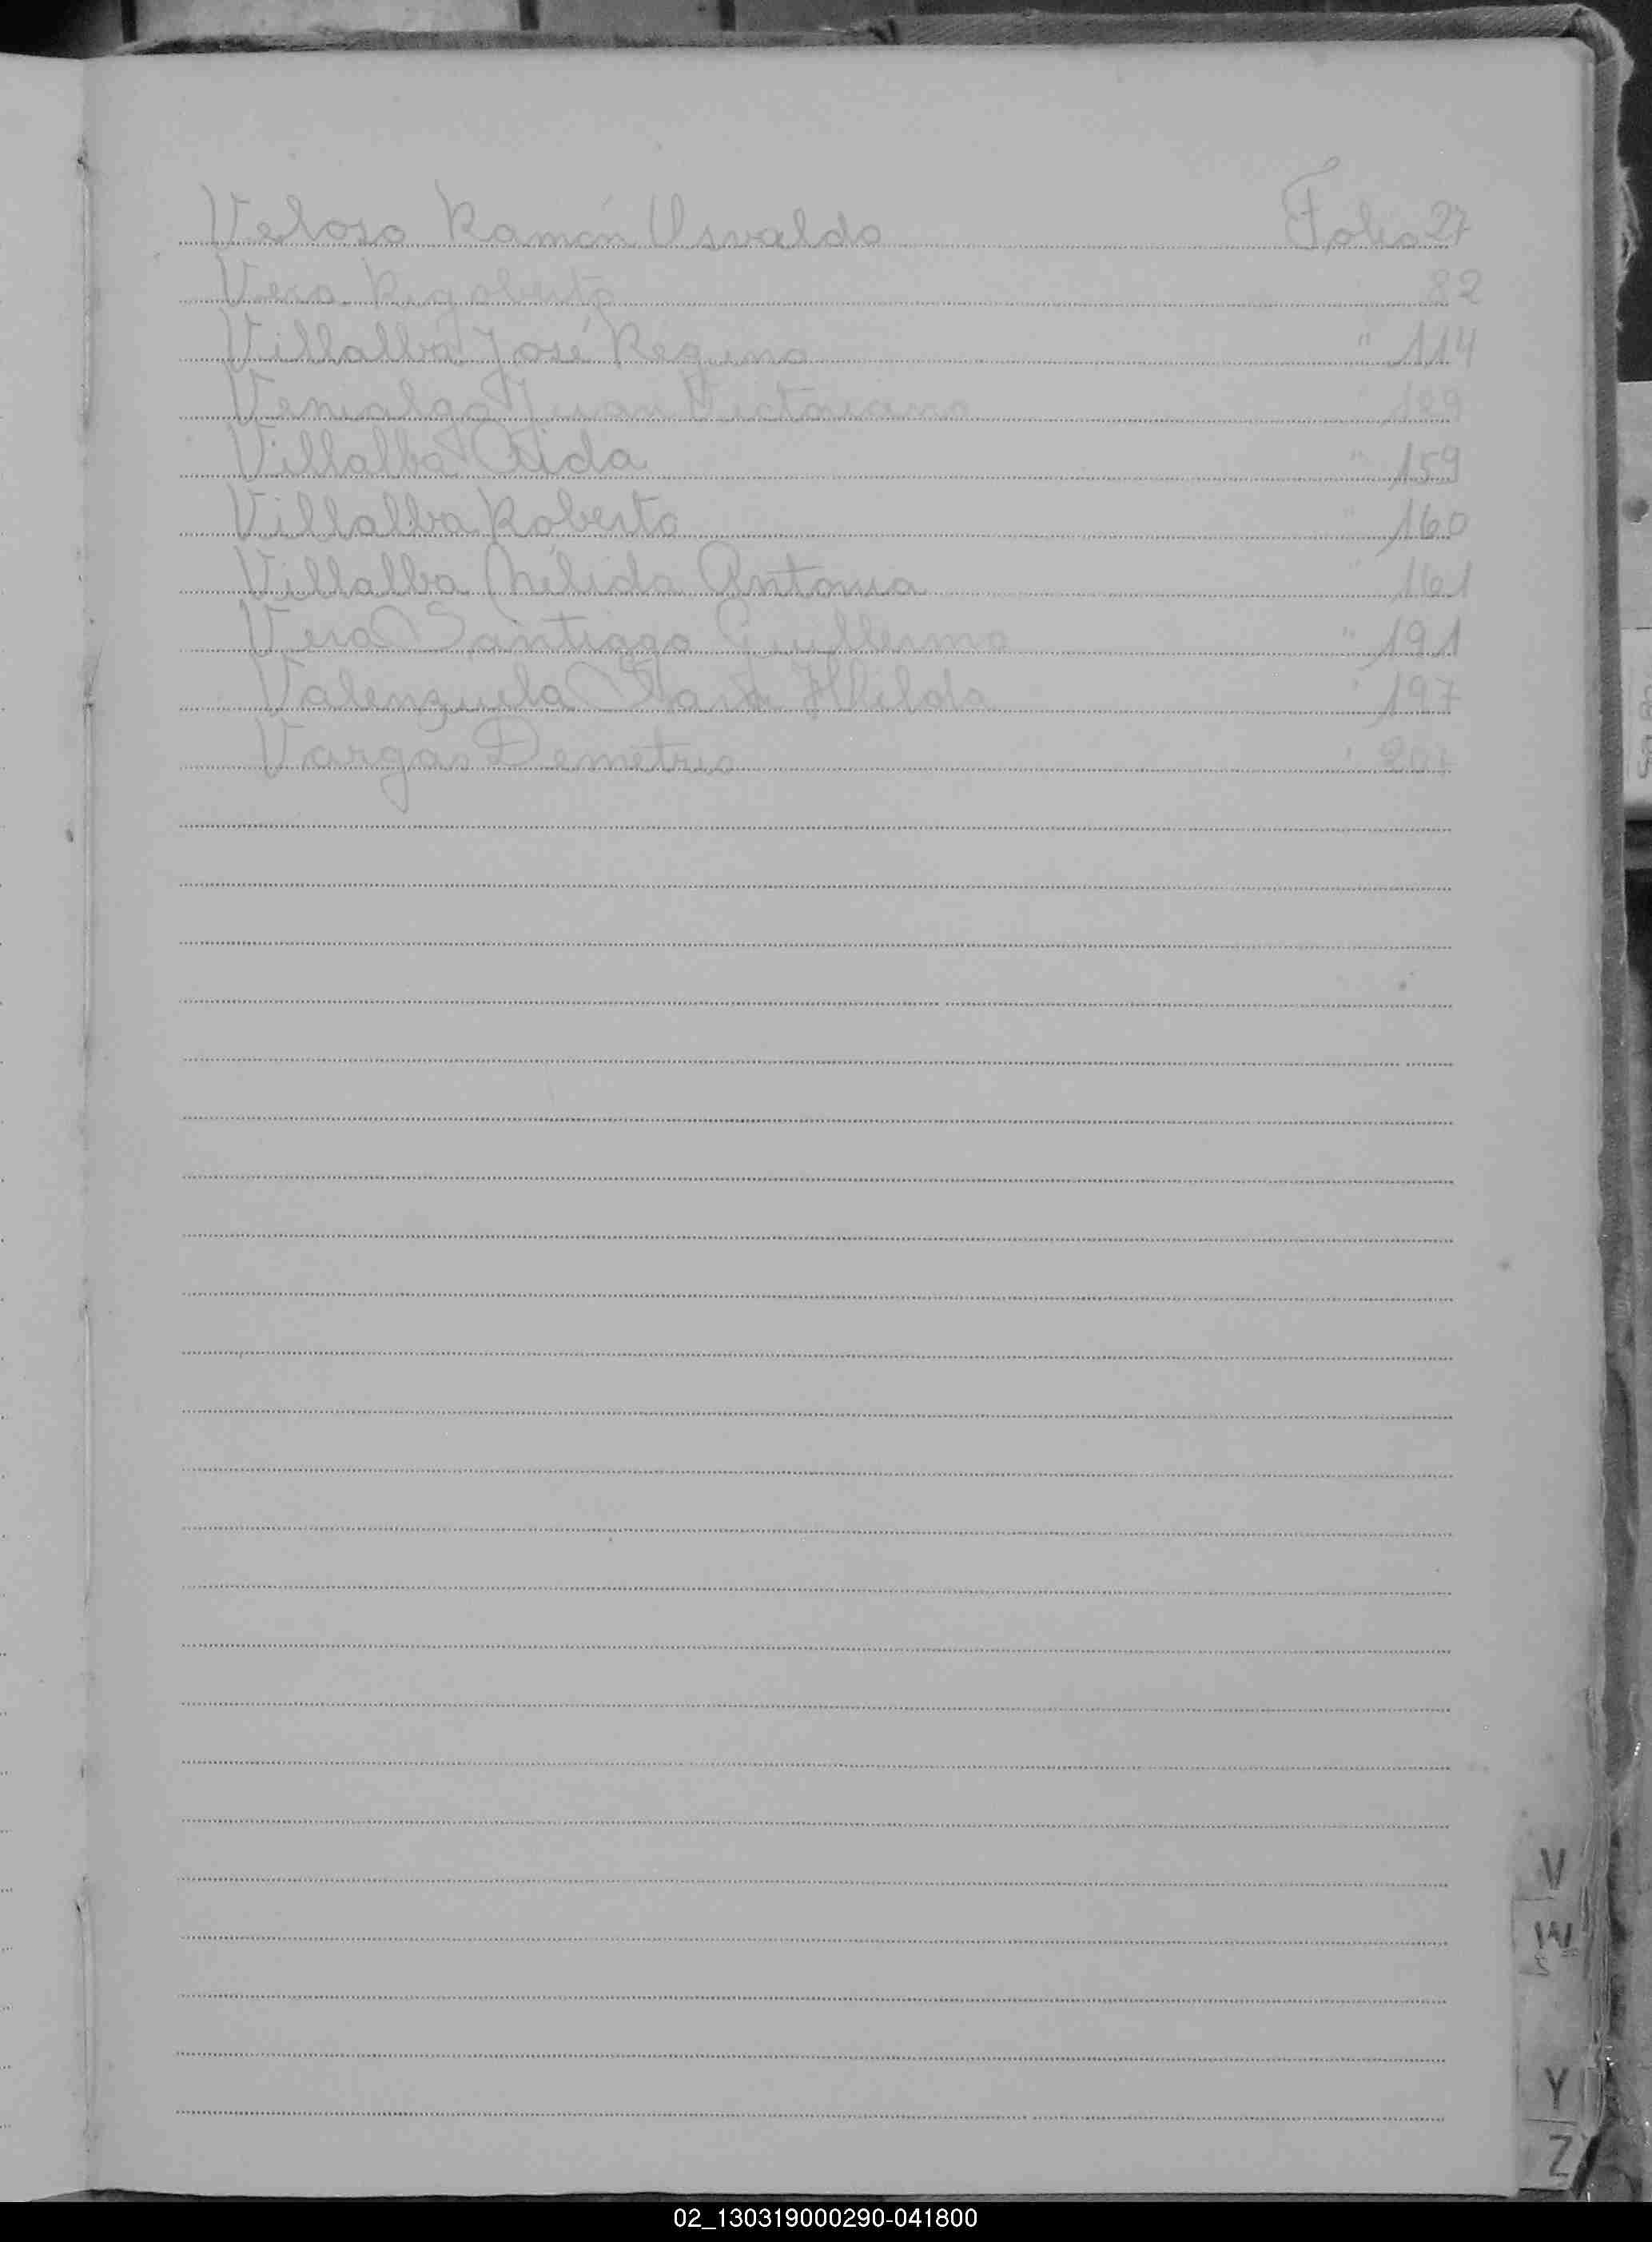 Veloso Ramón Osvaldo Folio 27
Vera Rigoberto 82
Villalba José Regino " 114
Venialgo Juan Victoriano
Villalba Aida " 159
Villalba Roberto " 160
Villalba Nélida Antonia " 161
Vera Santiago Guillermo " 191
Valenzuela Hilda " 197
Vargas Demetrio "
V
W
Y
Z
02_130319000290-041800